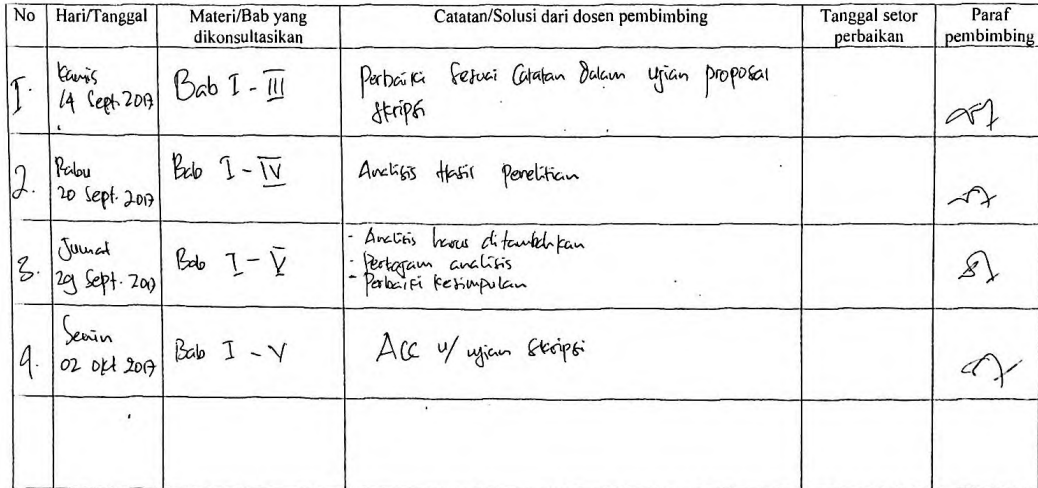 No Hari/Tanggal Materi/Bab yang dikonsultasikan Catatan/Solusi dari dosen pembimbing Tanggal setor perbaikan Paraf pembimbing
1. Kamis 14 Sept. 2017 Bab I - III Perbaiki sesuai Catatan dalam ujian proposal
skripsi
2. Rabu 20 Sept. 2017 Bab I - IV Analisis Hasil penelitian
3. Jumat 29 Sept. 2017 Bab I - V - Analisis harus ditambahkan
- Pertajam analisis
- Perbaiki kesimpulan
4. Senin 02 Okt 2017 Bab I - V ACC u/ ujian skripsi